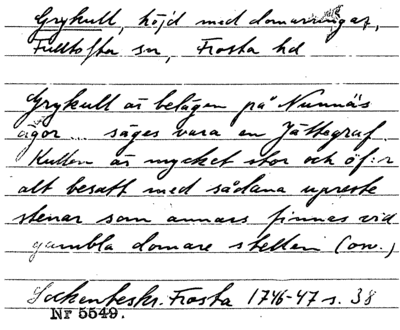 Grykull, höjd med domarringar,
Fulltofta sn, Frosta hd
Grykull är belägen på Nunnäs
ägor ... säges vara en Jättegraf.
Kullen är mycket stor och öf:r
alt besatt med sådana upreste
stenar som annars finnas vid
gambla domare stellen (ow.)
Sockenbeskr. Frosta 1746-47 s. 38
Nr 5549.